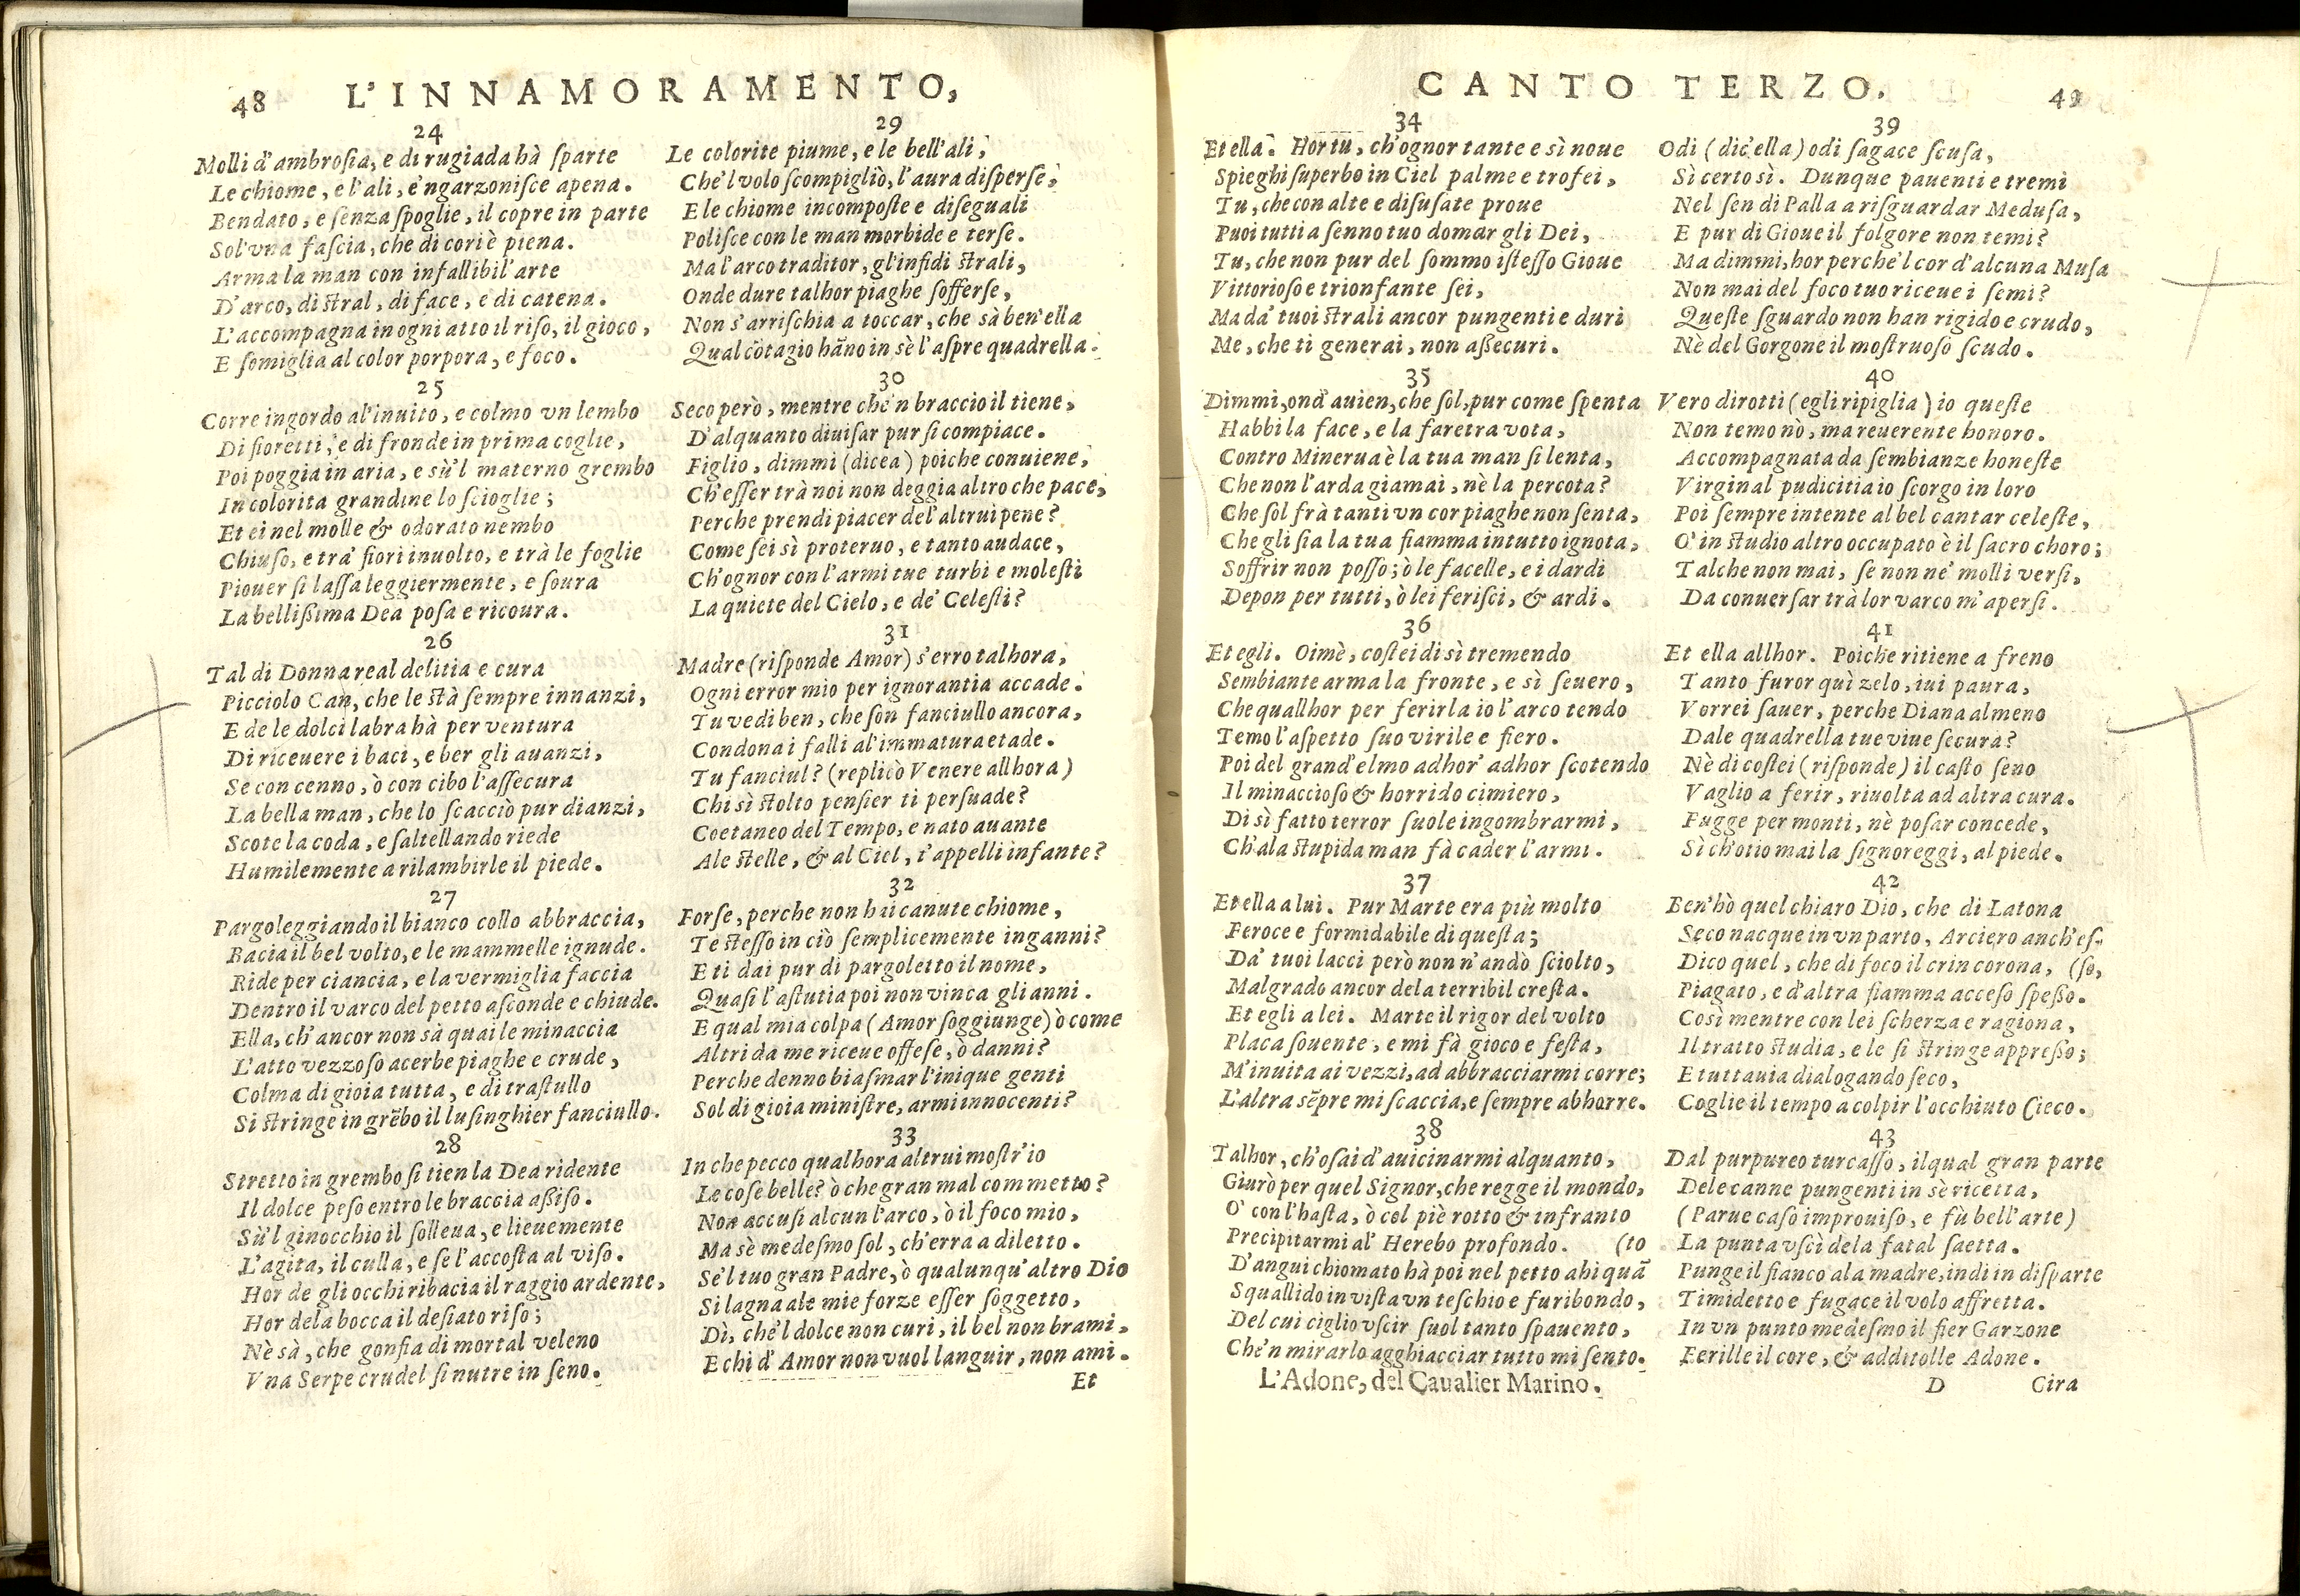 48 L'INNAMORAMENTO,
24
Molli d'ambrosia, e di rugiada hà sparte
Le chiome, e l'ali, e'ngarzonisce apena.
Bendato, e senza spoglie, il copre in parte
Sol'vna fascia, che di cori è piena.
Arma la man con infallibil'arte
D'arco, di stral, di face, e di catena.
L'accompagna in ogni atto il riso, il gioco,
E somiglia al color porpora, e foco.
25
Corre ingordo al'inuito, e colmo vn lembo
Di fioretti, e di fronde in prima coglie,
Poi poggia in aria, e sù'l materno grembo
In colorita grandine lo scioglie;
Et ei nel molle & odorato nembo
Chiuso, e trà fiori inuolto, e trà le foglie
Piouer si lassa leggiermente, e soura
La bellissima Dea posa e ricoura.
26
Tal di Donna real delitia e cura
Picciolo Can, che le stà sempre innanzi,
E de le dolci labra hà per ventura
Di riceuere i baci, e ber gli auanzi,
Se con cenno, ò con cibo l'assecura
La bella man, che lo scacciò pur dianzi,
Scote la coda, e saltellando riede
Humilemente a rilambirle il piede.
27
Pargoleggiando il bianco collo abbraccia,
Bacia il bel volto, e le mammelle ignude.
Ride per ciancia, e la vermiglia faccia
Dentro il varco del petto asconde e chiude.
Ella, ch'ancor non sà quai le minaccia
L'atto vezzoso acerbe piaghe e crude,
Colma di gioia tutta, e di trastullo
Si stringe in grẽbo il lusinghier fanciullo.
28
Stretto in grembo si tien la Dea ridente
Il dolce peso entro le braccia assiso.
Sù'l ginocchio il solleua, e lieuemente
L'agita, il culla, e se l'accosta al viso.
Hor de gli occhi ribacia il raggio ardente,
Hor dela bocca il desiato riso;
Nè sà, che gonfia di mortal veleno
Vna Serpe crudel si nutre in seno.
29
Le colorite piume, e le bell'ali,
Che'l volo scompigliò, l'aura disperse,
E le chiome incomposte e diseguali
Polisce con le man morbide e terse.
Ma l'arco traditor, gl'infidi strali,
Onde dure talhor piaghe sofferse,
Non s'arrischia a toccar, che sà ben'ella
Qual cõtagio hãno in sè l'aspre quadrella.
30
Seco però, mentre che'n braccio il tiene,
D'alquanto diuisar pur si compiace.
Figlio, dimmi (dicea) poiche conuiene,
Ch'esser trà noi non deggia altro che pace,
Perche prendi piacer del'altrui pene?
Come sei sì proteruo, e tanto audace,
Ch'ognor con l'armi tue turbi e molesti
La quiete del Cielo, e de' Celesti?
31
Madre (risponde Amor) s'erro talhora,
Ogni error mio per ignorantia accade.
Tu vedi ben, che son fanciullo ancora,
Condona i falli al'immatura etade.
Tu fanciul? (replicò Venere allhora)
Chi sì stolto pensier ti persuade?
Coetaneo del Tempo, e nato auante
Ale stelle, & al Ciel, t'appelli infante?
32
Forse, perche non hai canute chiome,
Te stesso in ciò semplicemente inganni?
E ti dai pur di pargoletto il nome,
Quasi l'astutia poi non vinca gli anni.
E qual mia colpa (Amor soggiunge) ò come
Altri da me riceue offese, ò danni?
Perche denno biasmar l'inique genti
Sol di gioia ministre, armi innocenti?
33
In che pecco qualhora altrui mostr'io
Le cose belle? ò che gran mal commetto?
Non accusi alcun l'arco, ò il foco mio,
Ma sè medesmo sol, ch'erra a diletto.
Se'l tuo gran Padre, ò qualunqu'altro Dio
Si lagna ale mie forze esser soggetto,
Dì, che'l dolce non curi, il bel non brami,
E chi d'Amor non vuol languir, non ami.
Et
CANTO TERZO. 49
34
Et ella. Hor tu, ch'ognor tante e sì noue
Spieghi superbo in Ciel palme e trofei,
Tu, che con alte e disusate proue
Puoi tutti a senno tuo domar gli Dei,
Tu, che non pur del sommo istesso Gioue
Vittorioso e trionfante sei,
Ma da' tuoi strali ancor pungenti e duri
Me, che ti generai, non assecuri.
35
Dimmi, ond'auien, che sol, pur come spenta
Habbi la face, e la faretra vota,
Contro Minerua è la tua man si lenta,
Che non l'arda giamai, nè la percota?
Che sol frà tanti vn cor piaghe non senta,
Che gli sia la tua fiamma in tutto ignota,
Soffrir non posso; ò le facelle, e i dardi
Depon per tutti, ò lei ferisci, & ardi.
36
Et egli. Oimè, costei di sì tremendo
Sembiante arma la fronte, e sì seuero,
Che quallhor per ferirla io l'arco tendo
Temo l'aspetto suo virile e fiero.
Poi del grand'elmo adhor' adhor scotendo
Il minaccioso & horrido cimiero,
Di sì fatto terror suole ingombrarmi,
Ch'ala stupida man fà cader l'armi.
37
Et ella a lui. Pur Marte era più molto
Feroce e formidabile di questa;
Da' tuoi lacci però non n'andò sciolto,
Malgrado ancor dela terribil cresta.
Et egli a lei. Marte il rigor del volto
Placa souente, e mi fà gioco e festa,
M'inuita ai vezzi, ad abbracciarmi corre;
L'altra sẽpre mi scaccia, e sempre abhorre.
38
Talhor, ch'osai d'auicinarmi alquanto,
Giurò per quel Signor, che regge il mondo,
O' con l'hasta, ò col piè rotto & infranto
Precipitarmi al' Herebo profondo. (to
D'angui chiomato hà poi nel petto ahi quã
Squallido in vista vn teschio e furibondo,
Del cui ciglio vscir suol tanto spauento,
Che'n mirarlo agghiacciar tutto mi sento.
L'Adone, del Caualier Marino.
39
Odi (dic'ella) odi sagace scusa,
Sì certo sì. Dunque pauenti e tremi
Nel sen di Palla a risguardar Medusa,
E pur di Gioue il folgore non temi?
Ma dimmi, hor perche'l cor d'alcuna Musa
Non mai del foco tuo riceue i semi?
Queste sguardo non han rigido e crudo,
Nè del Gorgone il mostruoso scudo.
40
Vero dirotti (egli ripiglia) io queste
Non temo nò, ma reuerente honoro.
Accompagnata da sembianze honeste
Virginal pudicitia io scorgo in loro
Poi sempre intente al bel cantar celeste,
O' in studio altro occupato è il sacro choro;
Talche non mai, se non ne' molli versi,
Da conuersar trà lor varco m'apersi.
41
Et ella allhor. Poiche ritiene a freno
Tanto furor quì zelo, iui paura,
Vorrei sauer, perche Diana almeno
Dale quadrella tue viue secura?
Nè di costei (risponde) il casto seno
Vaglio a ferir, riuolta ad altra cura.
Fugge per monti, nè posar concede,
Sì ch'otio mai la signoreggi, al piede.
42
Ben'hò quel chiaro Dio, che di Latona
Seco nacque in vn parto, Arciero anch'es-
Dico quel, che di foco il crin corona, (so,
Piagato, e d'altra fiamma acceso spesso.
Così mentre con lei scherza e ragiona,
Il tratto studia, e le si stringe appresso;
E tuttauia dialogando seco,
Coglie il tempo a colpir l'occhiuto Cieco.
43
Dal purpureo turcasso, ilqual gran parte
Dele canne pungenti in sè ricetta,
(Parue caso improuiso, e fù bell'arte)
La punta vscì dela fatal saetta.
Punge il fianco ala madre, indi in disparte
Timidetto e fugace il volo affretta.
In vn punto medesmo il fier Garzone
Ferille il core, & additolle Adone.
D Gira